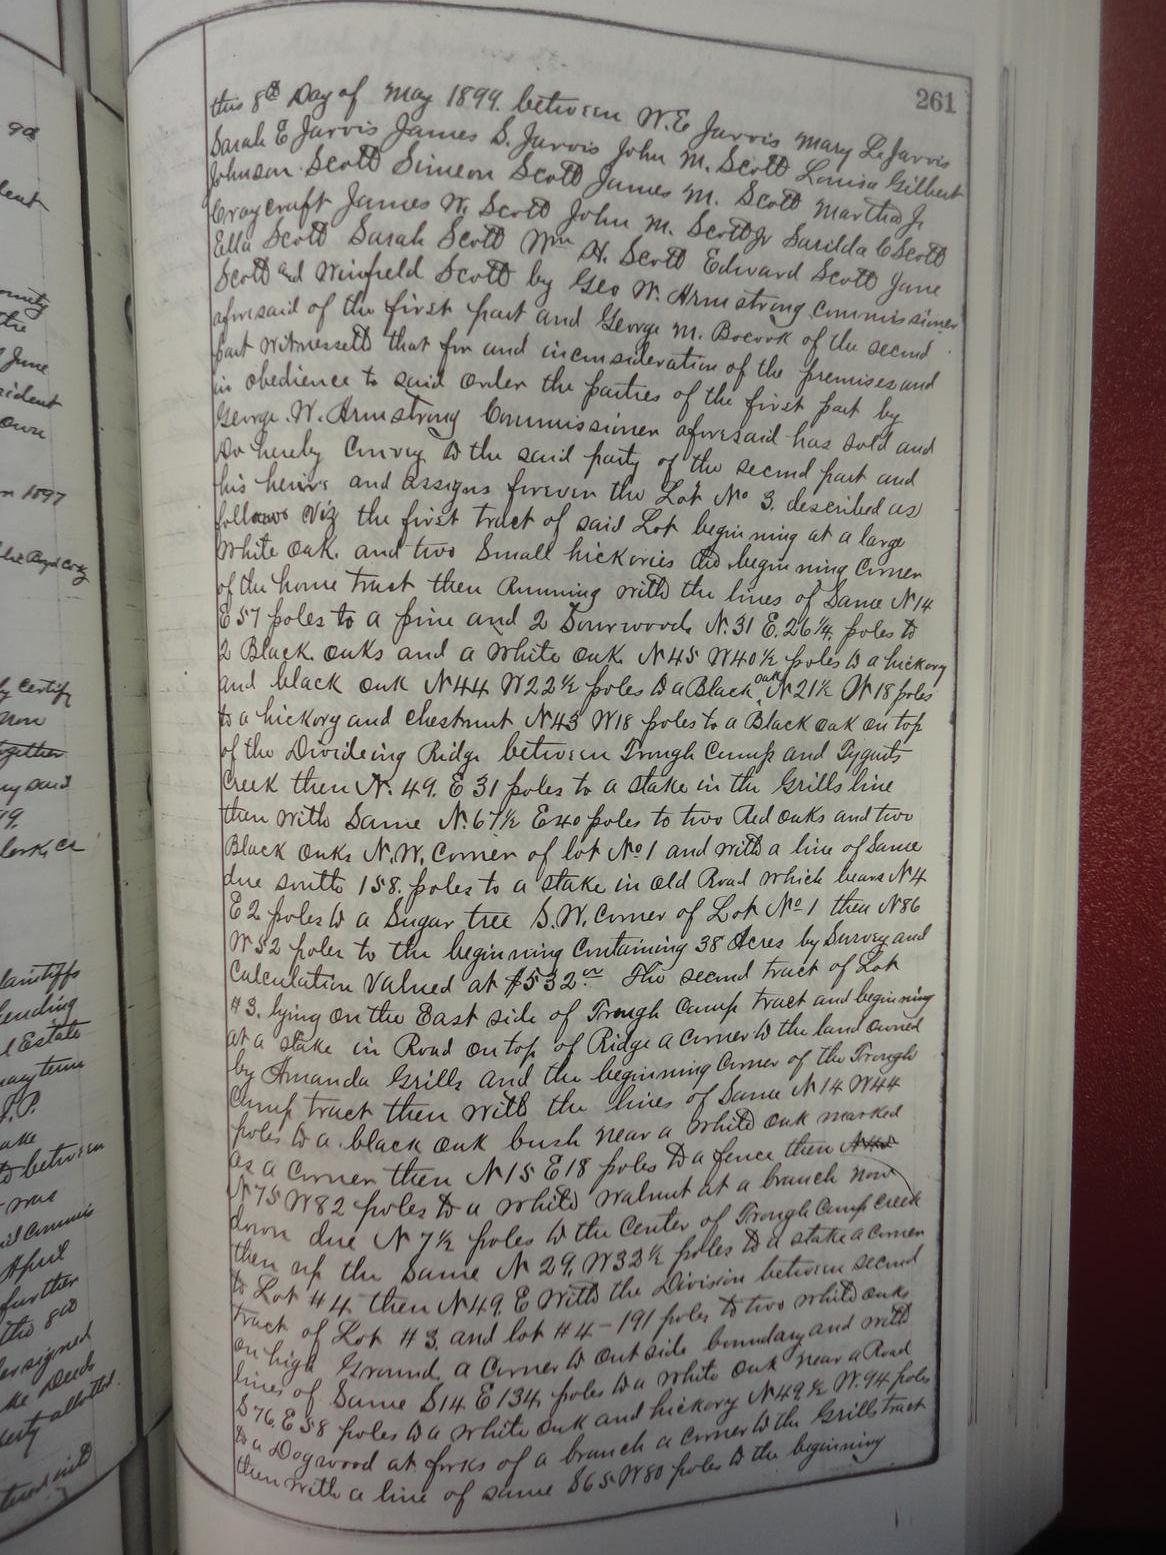 261
this 8th Day of May 1899. between W. E Jarvis Mary L. Jarvis
Sarah E Jarvis James S. Jarvis John M. Scott Louisa Gilbert
Johnson Scott Simeon Scott James M. Scott Martha J.
Craycraft James W. Scott John M. Scott Jr Sarilda C Scott
Ella Scott Sarah Scott Wm H. Scott Edward Scott Jane
Scott and Winfield Scott by Geo W. Armstrong Commissioner
aforesaid of the first part and George M. Bocook of the second
part Witnesseth that for and inconsideration of the premises and
in obedience to said order the parties of the first part by
George. W. Armstrong Commissioner aforesaid has sold and
do hereby Convey to the said party of the second part and
his heirs and assigns forever the Lot No 3. described as
follows Viz the first tract of said Lot beginning at a large
White oak. and two Small hickories the beginning Corner
of the home tract then Running with the lines of Same N 14
E 57 poles to a pine and 2 Sourwoods N. 31 E. 26 1/4 poles to
2 Black oaks and a white oak N 45 W 40 1/2 poles to a hickory
and black oak N 44 W 22 1/2 poles to a Black oak N 21 1/2 W 18 poles
to a hickory and chestnut N 43 W 18 poles to a Black oak on top
of the Divideing Ridge between Trough Camp and Tygarts
Creek then N. 49. E 31 poles to a stake in the Grills line
then with Same N. 67 1/2 E 40 poles to two Red oaks and two
Black oaks N.W. Corner of lot No 1 and with a line of Same
due south 158. poles to a stake in old Road which bears N 4
E 2 poles to a Sugar tree S.W. Corner of Lot No 1 then N 86
W 52 poles to the beginning Containing 38 Acres by Survey and
Calculation Valued at $532 The second tract of Lot
#3. lying on the East side of Trough Camp tract and beginning
at a stake in Road on top of Ridge a Corner to the land owned
by Amanda Grills and the beginning Corner of the Trough
Camp tract then with the lines of Same N 14 W 44
poles to a black oak bush near a white oak marked
as a Corner then N 15 E 18 poles to a fence then
N 75 W 82 poles to a white walnut at a branch now
down due N 7 1/2 poles to the Center of Trough Camp Creek
then up the Same N 29. W 32 1/2 poles to a stake a Corner
to Lot #4 then N 49. E With the Division between second
tract of Lot #3. and lot #4 - 191 poles to two white oaks
on high Ground a Corner to out side boundary and with
lines of Same S 14 E 134 poles to a white oak near a Road
S 76. E 58 poles to a white oak and hickory N 49 1/2 W. 94 poles
to a Dogwood at forks of a branch a Corner to the Grills tract
then with a line of same S 65 W 80 poles to the beginning
9th
June
own
1897
Certify
together
plaintiffs
Estate
between
was
April
further
the 8th
Deeds